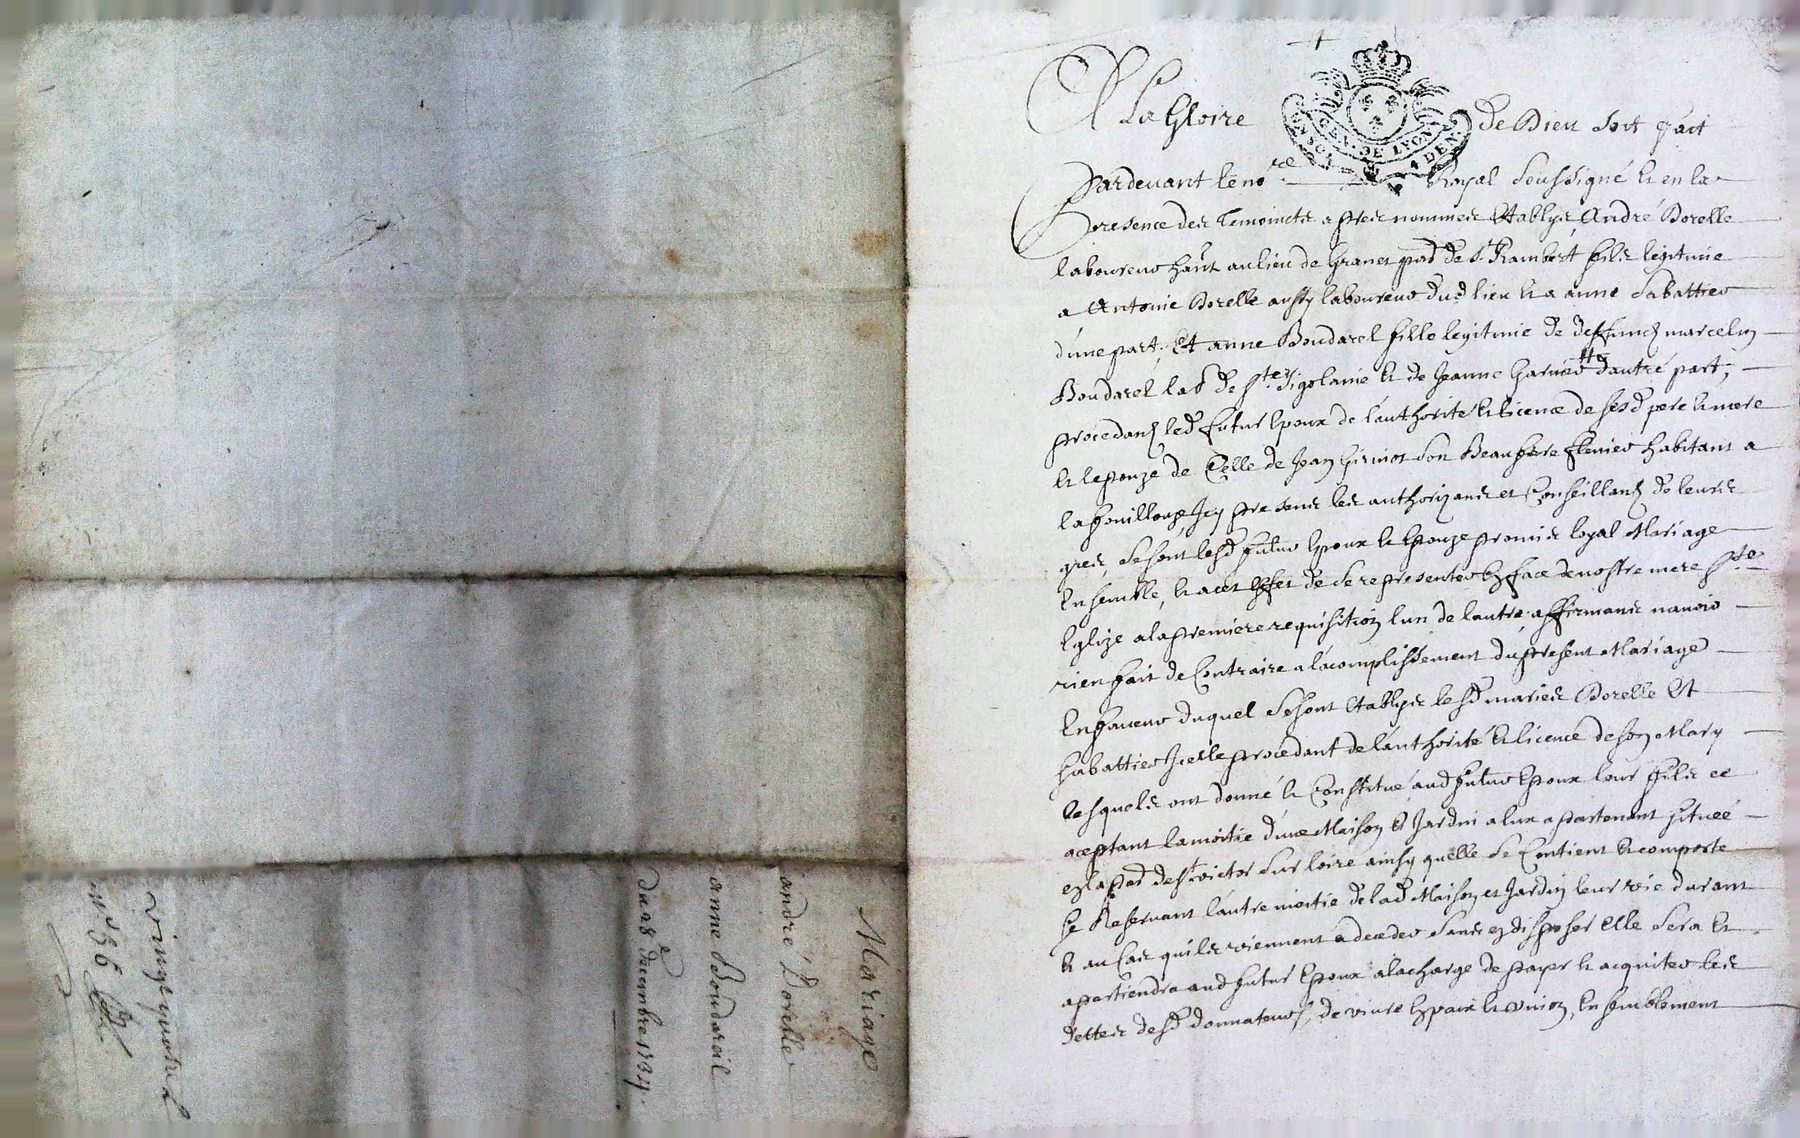 Mariage
andré Dorelle
anne Boudarel
du 28e decembre 1734.
vingt quatre L
A La Gloire de Dieu soit fait
GEN. DE LYON
4 DEN.
Pardevant le nore Royal soussigné et en la
presence des temoincts apres nommes Etablys André Dorelle
laboureur hant au lieu de Granet pad de st Rambert fils legitime
a Antoine Dorelle aussy laboureur dud lieu et a anne Sabattier
d'une part; Et anne Boudarel fille legitime de deffunct marcelin
Boudarel lab de Ste Sigolaine et de Jeanne Garnier d'autre part;
procedant led futur Epoux de l'authorité et licence de sesd pere et mere
et l'epouze de Celle de Jean Girinot son Beau pere fermier habitant a
la fouillouze Jcy presents les authorizants et Conseillant de leurs
gres, se sont lesd futur Epoux et Epouze promis loyal Mariage
Ensemble, et a cet effet de se representer En face de nostre mere Ste
Eglize a la premiere requisition l'un de l'autre, affirmants n'avoir
rien fait de Contraire a l'acomplissement du present Mariage
En faveur duquel se sont Etablys lesd maries Dorelle Et
Sabattier Jcelle procedant de l'authorité et licence de son Mary
lesquels ont donné et Constitué aud futur Epoux leur fils ce
aceptant la moitie d'une Maison et Jardin a eux apartenant située
en la pad de st victor sur loire ainsy qu'elle se Contient et comporte
se Reservant l'autre moitie de lad Maison et Jardin leur vie durant
et au Cas qu'ils viennent a deceder sans en disposer Elle sera et
apartiendra aud futur Epoux a la charge de payer et acquiter les
dettes desd donnateurs, de vivre En paix et union, Ensemblement